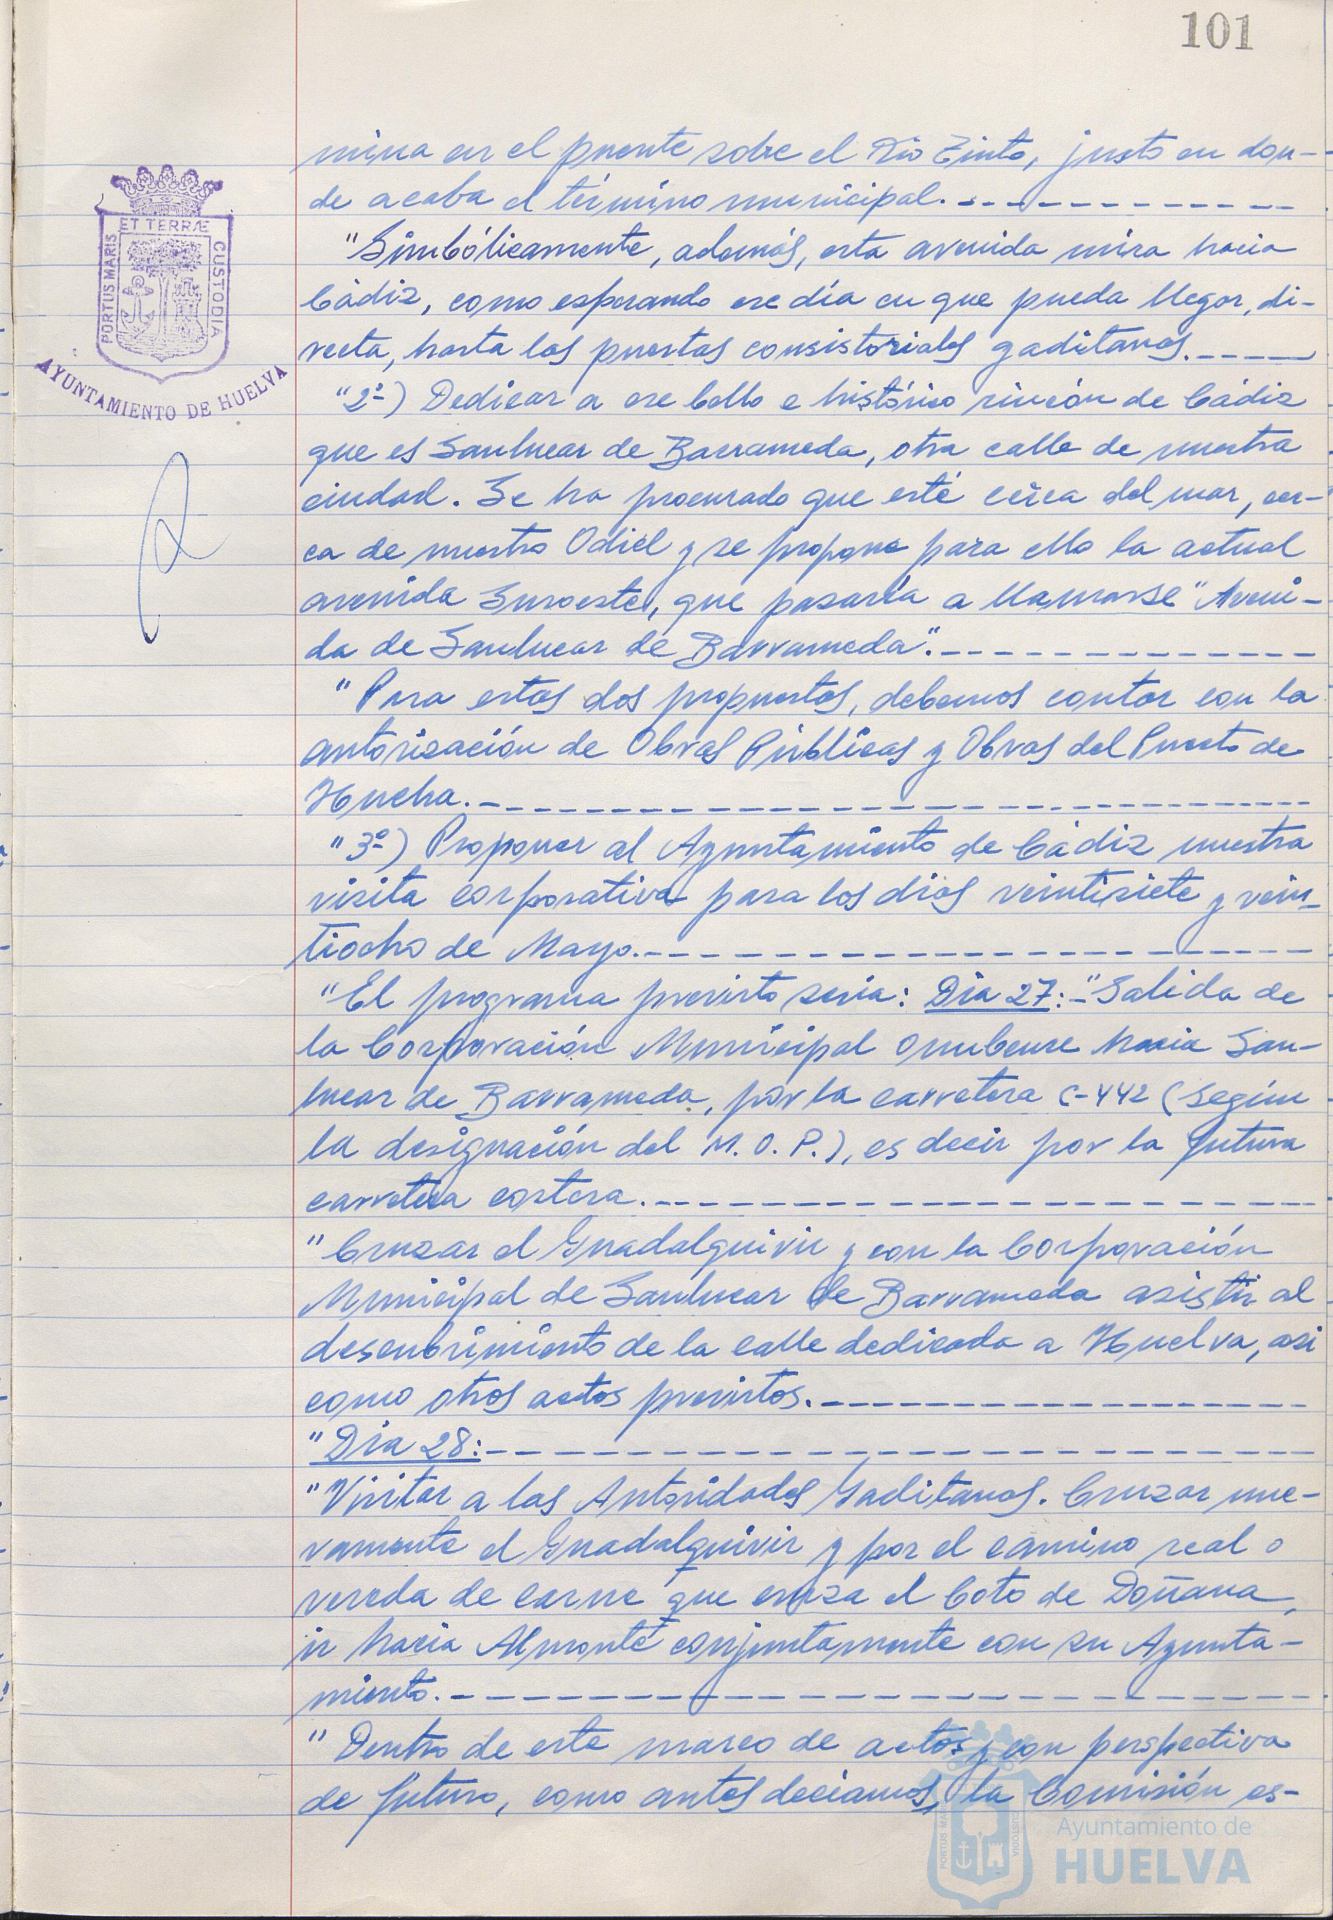 101
mina en el puente sobre el Rio Tinto, justo en don-
de acaba el término municipal.
"Simbólicamente, además, esta avenida mira hacia
Cádiz, como esperando ese día en que pueda llegar, di-
recta, hasta las puertas consistoriales gaditanas.
"2º) Dedicar a ese bello e histórico rincón de Cádiz
que es Sanlucar de Barrameda, otra calle de nuestra
ciudad. Se ha procurado que esté cerca del mar, cer-
ca de nuestro Odiel y se propone para ello la actual
avenida Suroeste, que pasaría a llamarse "Aveni-
da de Sanlucar de Barrameda".
"Para estas dos propuestas, debemos contar con la
autorización de Obras Públicas y Obras del Puerto de
Huelva.
"3º) Proponer al Ayuntamiento de Cádiz nuestra
visita corporativa para los dias veintisiete y vein-
tiocho de Mayo.
"El programa previsto seria: Dia 27:-"Salida de
la Corporación Municipal onubense hacia San-
lucar de Barrameda, por la carretera C-442 (según
la designación del M.O.P.), es decir por la futura
carretera costera.
"Cruzar el Guadalquivir y con la Corporación
Municipal de Sanlucar de Barrameda asistir al
descubrimiento de la calle dedicada a Huelva, asi
como otros actos previstos.
"Dia 28:-
"Visitar a las Autoridades Gaditanas. Cruzar nue-
vamente el Guadalquivir y por el camino real o
vereda de carne que cruza el Coto de Doñana,
ir hacia Almonte conjuntamente con su Ayunta-
miento.
"Dentro de este marco de actos y con perspectiva
de futuro, como antes deciamos, la Comisión es-
PORTUS MARIS ET TERRÆ CUSTODIA
AYUNTAMIENTO DE HUELVA
Ayuntamiento de
HUELVA